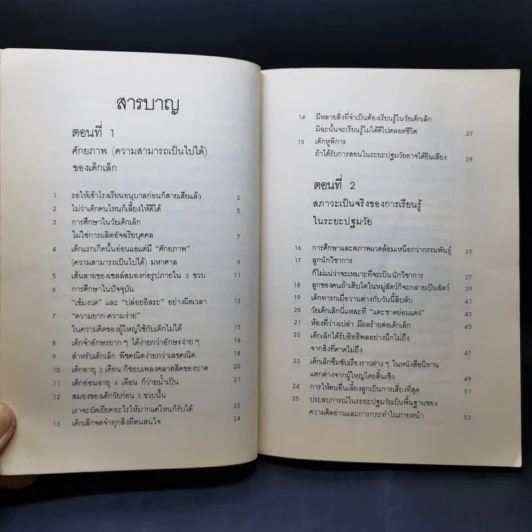 สารบาญ
ตอนที่ 1
ศักยภาพ (ความสามารถเป็นไปได้)
ของเด็กเล็ก
1 รอให้เข้าโรงเรียนอนุบาลก่อนก็สายเสียแล้ว 3
2 ไม่ว่าเด็กคนไหนก็เลี้ยงให้ดีได้ 5
3 การศึกษาในวัยเด็กเล็ก
ไม่ใช่การผลิตอัจฉริยบุคคล 7
4 เด็กแรกเกิดนั้นอ่อนแอแต่มี "ศักยภาพ"
(ความสามารถเป็นไปได้) มหาศาล 9
5 เส้นสายของเซลล์สมองก่อรูปภายใน 3 ขวบ 11
6 การศึกษาในปัจจุบัน
"เข้มงวด" และ "ปล่อยอิสระ" อย่างผิดเวลา 13
7 "ความยาก-ความง่าย"
ในความคิดของผู้ใหญ่ใช้กับเด็กไม่ได้ 15
8 เด็กจำอักษรยาก ๆ ได้ง่ายกว่าอักษรง่าย ๆ 16
9 สำหรับเด็กเล็ก พีชคณิตง่ายกว่าเลขคณิต 18
10 เด็กอายุ 3 เดือน ก็ชอบเพลงคลาสสิคของบาค 20
11 เด็กอ่อนอายุ 6 เดือน ก็ว่ายน้ำเป็น 21
12 สมองของเด็กวัยก่อน 3 ขวบนั้น
เราจะยัดเยียดอะไรให้มากแค่ไหนก็รับได้ 22
13 เด็กเล็กจดจำทุกสิ่งที่ตนสนใจ 24
14 มีหลายสิ่งที่จำเป็นต้องเรียนรู้ในวัยเด็กเล็ก
มิฉะนั้นจะเรียนรู้ไม่ได้ดีไปตลอดชีวิต 27
15 เด็กหูพิการ
ถ้าได้รับการสอนในระยะปฐมวัยอาจได้ยินเสียง 29
ตอนที่ 2
สภาวะเป็นจริงของการเรียนรู้
ในระยะปฐมวัย
16 การศึกษาและสภาพแวดล้อมเหนือกว่ากรรมพันธุ์ 35
17 ลูกนักวิชาการ
ก็ไม่แน่ว่าจะเหมาะที่จะเป็นนักวิชาการ 37
18 ลูกของคนถ้าเติบโตในหมู่สัตว์ก็จะกลายเป็นสัตว์ 38
19 เด็กทารกเมื่อวานต่างกับวันนี้ลิบลับ 39
20 วัยเด็กเล็กนี่แหละที่ 40
21 ห้องที่ว่างเปล่า มีผลร้ายต่อเด็กเล็ก 43
22 เด็กเล็กได้รับอิทธิพลอย่างนึกไม่ถึง
จากสิ่งที่คาดไม่ถึง 45
23 เด็กเล็กซึมซับเรื่องราวต่าง ๆ ในหนังสือนิทาน
แตกต่างจากผู้ใหญ่โดยสิ้นเชิง 49
24 การให้คนอื่นเลี้ยงลูกเป็นการเสี่ยงที่สุด 51
25 ประสบการณ์ในระยะปฐมวัยเป็นพื้นฐานของ
ความคิดอ่านและการกระทำในภายหน้า 53